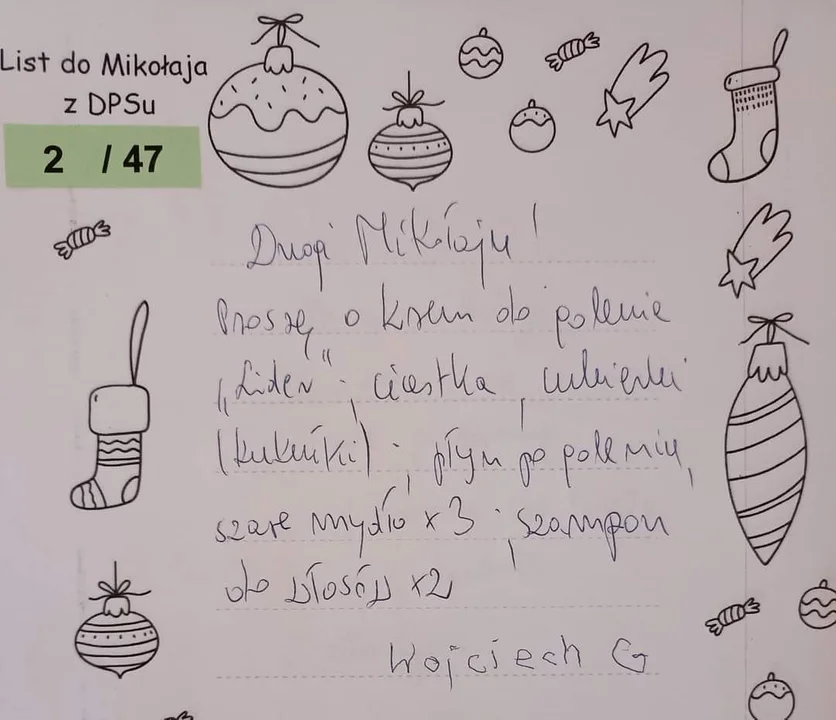 List do Mikołaja
z DPSu
2 / 47
Drogi Mikołaju!
Proszę o krem do golenia
„Lider", ciastka, cukierki
(kukułki), płyn po goleniu,
szare mydło x 3, szampon
do włosów x2
Wojciech G